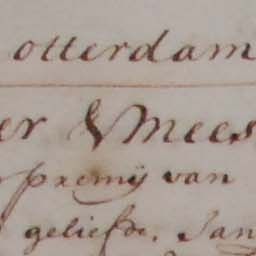 otterdam
er & Mees
premij van
geliefde, Jan